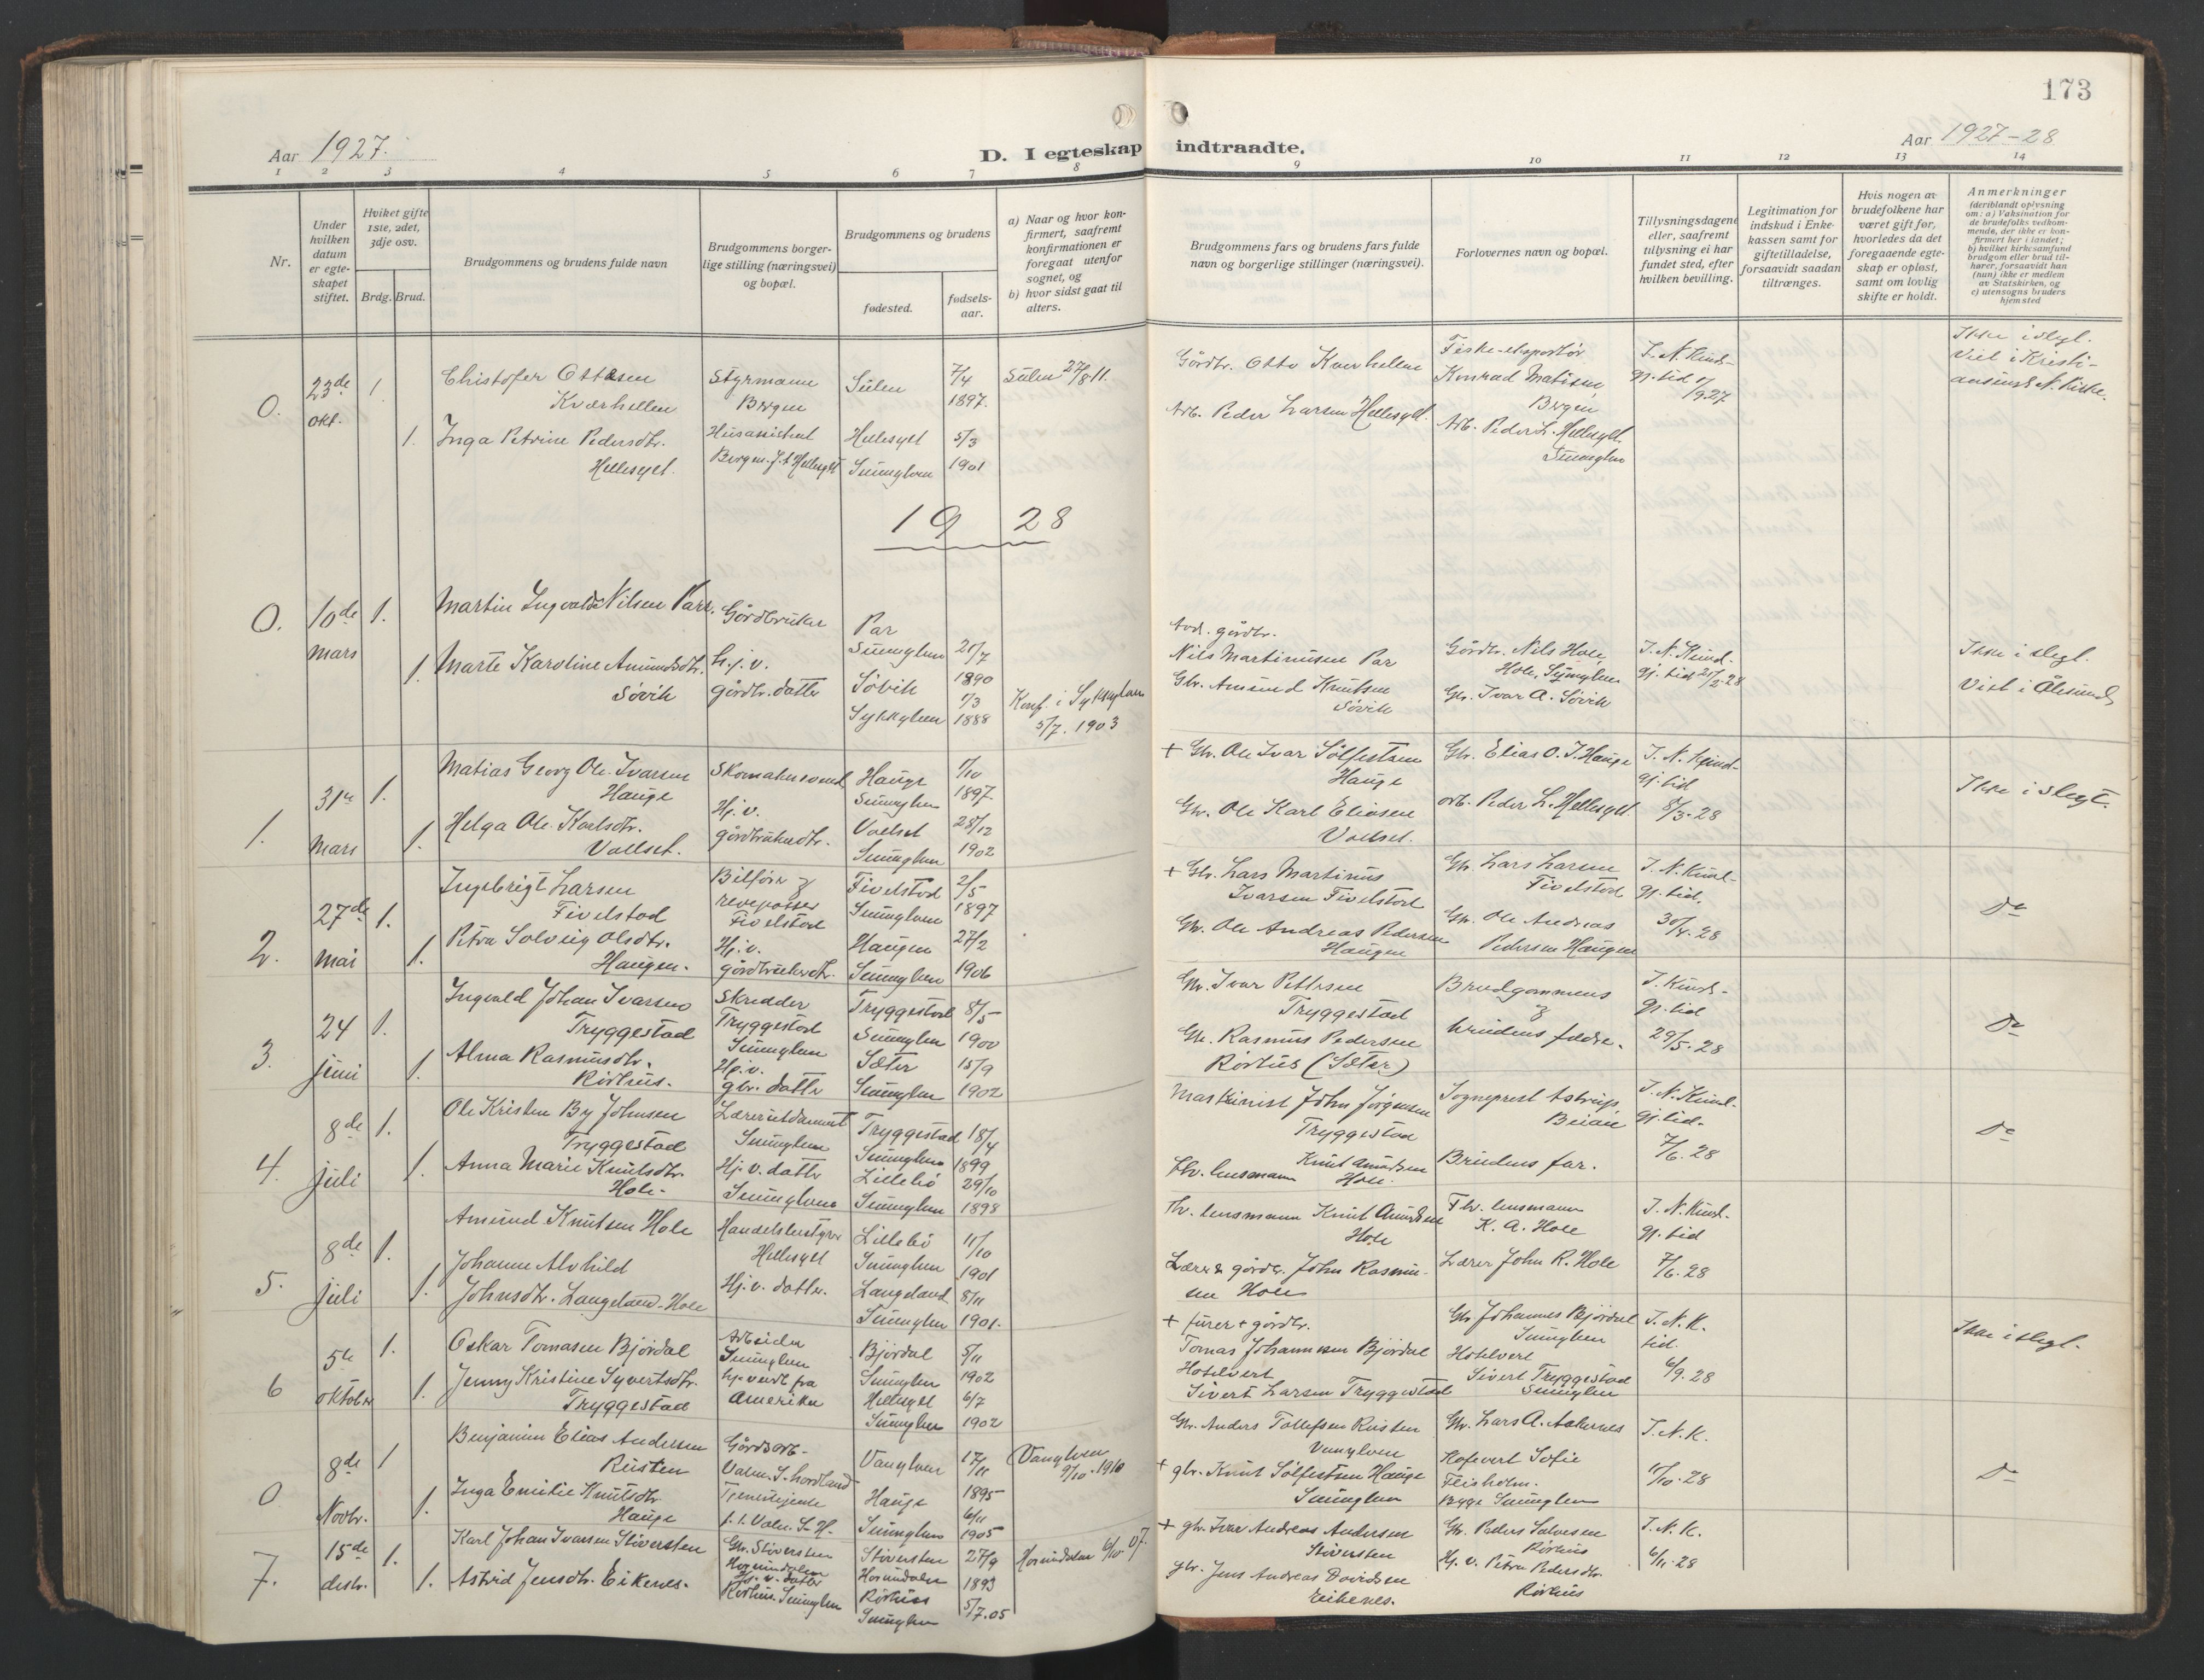 173
Aar 1927.
D. I egteskap indtraadte.
Aar 1927-28
1 2 3 4 5 6 7 8 9 10 11 12 13 14
Nr.
Under
hvilken
datum
er egte-
skapet
stiftet.
Hviket gifte
1ste, 2det,
3dje osv.
Brdg. Brud.
Brudgommens og brudens fulde navn
Brudgommens borger-
lige stilling (næringsvei)
og bopæl.
Brudgommens og brudens
fødested.
fødsels-
aar.
a) Naar og hvor kon-
firmert, saafremt
konfirmationen er
foregaat utenfor
sognet, og
b) hvor sidst gaat til
alters.
Brudgommens fars og brudens fars fulde
navn og borgerlige stillinger (næringsvei).
Forlovernes navn og bopæl.
Tillysningsdagene
eller, saafremt
tillysning ei har
fundet sted, efter
hvilken bevilling.
Legitimation for
indskud i Enke-
kassen samt for
giftetilladelse,
forsaavidt saadan
tiltrænges.
Hvis nogen av
brudefolkene har
været gift før,
hvorledes da det
foregaaende egte-
skap er opløst,
samt om lovlig
skifte er holdt.
Anmerkninger
(deriblandt oplysning
om: a) Vaksination for
de brudefolks vedkom-
mende, der ikke er kon-
firmert her i landet;
b) hvilket kirkesamfund
brudgom eller brud til-
hører, forsaavidt han
(hun) ikke er medlem
av Statskirken, og
c) utensogns bruders
hjemsted
0.
23de
okt.
1.
Christofer Ottesen
Kværhellen
Styrmann
Bergen
Sulen
7/4
1897.
Sulen 27/8 11.
Gårdbr. Otto Kverhellen
Fiske-eksportør
Konrad Matisen,
Bergen
I. N. Kund-
gj. tid
Ikke i slegt.
Viet i Kristi-
ansund N. Kirke.
1.
Inga Petrine Pedersdtr.
Hellesylt.
Husassistent
Bergen. f. t. Hellesylt
Hellesylt
Sunnylven
5/3
1901
Arb. Peder Larsen Hellesylt.
Arb. Peder L. Hellesylt
Sunnylven
1928
0.
10de
mars
1.
Martin Ingvald Nilsen Parr.
Gårdbruker
Par
Sunnylven
1890
Nils Martinusen Par
Gårdbr. Nils Hole,
Hole, Sunnylven
I. N. Kund-
gj. tid 21/2-28
Ikke i slegt.
Viet i Ålesund
1.
Marte Karoline Amundsdtr.
Søvik
h. j. v.
gårdbr. datter
Søvik
Sykkylven
1/3
1888
Konf. i Sykkylven
5/7. 1903
Gbr. Amund Knutsen
Søvik
Gbr. Ivar A. Søvik
1.
31te
Mars
1.
Matias Georg Ole-Ivarsen
Hauge
Hauge
Sunnylven
1/10
1897
+ Gbr. Ole Ivar Sølfestsen
Hauge
Gbr. Elias O. I. Hauge
I. N. Kund-
gj. tid
8/3-28
Ikke i slegt.
1.
Helga Ole-Karlsdtr.
Vollset.
Hj. v.
gårdbrukerdtr.
Vollset
Sunnylven
28/12
1902
Gbr. Ole Karl Eliasen
Vollset.
arb. Peder L. Hellesylt.
2.
27de
Mai
1.
Ingebrigt Larsen
Fivelstad
Bilfører &
revepasser
Fivelstad
Fivelstad
Sunnylven
2/5
1897
+ Gbr. Lars Martinus
Ivarsen Fivelstad
Gbr. Lars Larsen
Fivelstad
I. N. Kund-
gj. tid.
30/4.28
Do
1.
Petra Solveig Olsdtr.
Haugen.
Hj. v.
gårdbrukerdtr.
Haugen
Sunnylven
27/2
1906
Gbr. Ole Andreas Pedersen
Haugen
Gbr. Ole Andreas
Pedersen Haugen
3.
24
juni
1.
Ingvald Johan Ivarsen
Tryggestad
Skredder
Tryggestad
Sunnylven
Tryggestad
Sunnylven
8/5
1900
Gbr. Ivar Pettersen
Tryggestad
Brudgommens
&
brudens fædre.
I. Kund-
gj. tid
29/5-28
Do
1.
Alma Rasmusdtr.
Rørhus.
Hj. v.
gbr. datter
Sæter
Sunnylven
15/9
1902
Gbr. Rasmus Pedersen
Rørhus (Sæter)
4.
8de
juli
1.
Ole Kristen By Johnsen
Tryggestad
Lærerutdannet
Sunnylven
Tryggestad
Sunnylven
18/4
1899
Maskinist John Jørgensen
Tryggestad
Sogneprest Astrup
I. N. Kund-
gj. tid.
7/6. 28
Do
1.
Anna Marie Knutsdtr.
Hole.
Hj. v. datter
Sunnylven
Lillebö
Sunnylven
29/10
1898
fhv. lensmann Knut Amundsen
Hole.
Brudens far.
5.
8de
juli
1.
Amund Knutsen Hole
Handelsbestyrer
Hellesylt
Lillebö
Sunnylven
11/10
1901
Fhv. lensmann Knut Amundsen
Hole
Fhv. lensmann
K. A. Hole
I. N. Kund-
gj. tid
7/6.28
1.
Johanne Alvhild
Johnsdtr. Langeland-Hole
Hj. v. datter.
Langeland
Sunnylven
8/11
1901.
Lærer & gårdbr. John Rasmus-
sen Hole
Lærer John R. Hole
6
5te
oktober
1.
Oskar Tomasen Bjørdal
Arbeider
Sunnylven
Bjørdal
Sunnylven
5/11
1902
+ furer + gårdbr.
Tomas Johannesen Bjørdal
Gbr. Johannes Bjørdal
Sunnylven
I. N. K.
tid.
6/9. 28
Ikke i slegt.
1.
Jenny Kristine Syvertsdtr.
Tryggestad
hjemvendt fra
Amerika
Hellesylt
Sunnylven
6/7
1902
Hotelvert
Sivert Larsen Tryggestad
Hotelvert
Sivert Tryggestad
Sunnylven
0
8de
Novbr.
1
Benjamin Elias Andersen
Rusten
Gårdsarb-
Vanylven
17/11
1895
Vanylven
9/10.1910
Gbr. Anders Tollefsen Rusten
Vanylven
Gbr. Lars A. Aakernes
I. N. K.
Do
1.
Inga Emilie Knutsdtr
Hauge
Hauge
Sunnylven
6/11
1905
+ gbr. Knut Sølfestsen Hauge
Sunnylven
Sofie
Sunnylven
7.
15de
desbr.
1.
Karl Johan Ivarsen Støversten
Gbr. Støversten
Hornindalen
Støversten
Hornindalen
27/9
1893
Hornindalen 6/10 07.
+ gbr. Ivar Andreas Andersen
Støversten
Gbr. Peder Salvesen
Rørhus
I. N. K.
6/11-28
1.
Astrid Jensdtr. Eikenes.
Hj. v. datter
Rørhus. Sunnylven
Rørhus
Sunnylven
5/7.05
gbr. Jens Andreas Davidsen
Eikenes.
Hj. v. Petra Pedersdtr.
Rørhus